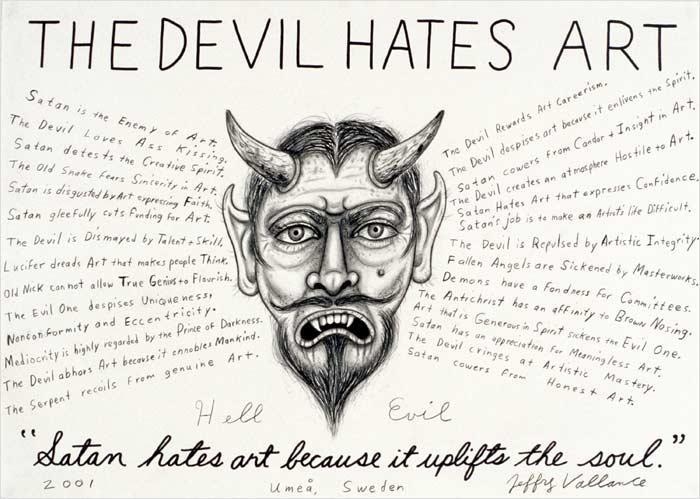 THE DEVIL HATES ART
Satan is the Enemy of Art.
The Devil Loves Ass Kissing.
Satan detests the Creative Spirit.
The Old Snake Fears Sincerity in Art.
Satan is disgusted by Art expressing Faith.
Satan gleefully cuts funding for Art.
The Devil is Dismayed by Talent + Skill.
Lucifer dreads Art that makes people Think.
Old Nick can not allow True Genius to Flourish.
The Evil One despises Uniqueness,
Nonconformity and Eccentricity.
Mediocrity is highly regarded by the Prince of Darkness.
The Devil abhors Art because it ennobles Mankind.
The Serpent recoils from genuine Art.
The Devil Rewards Art Careerism.
The Devil despises art because it enlivens the Spirit.
Satan cowers from Candor + Insight in Art.
The Devil creates an atmosphere Hostile to Art.
Satan Hates Art that expresses Confidence.
Satan's job is to make an Artist's life Difficult.
The Devil is Repulsed by Artistic Integrity.
Fallen Angels are Sickened by Masterworks.
Demons have a Fondness for Committees.
The Antichrist has an affinity to Brown Nosing.
Art that is Generous in Spirit sickens the Evil One.
Satan has an appreciation for Meaningless Art.
The Devil cringes at Artistic Mastery.
Satan cowers from Honest Art.
Hell Evil
"Satan hates art because it uplifts the soul."
2001 Umeå, Sweden Jeffry Vallance